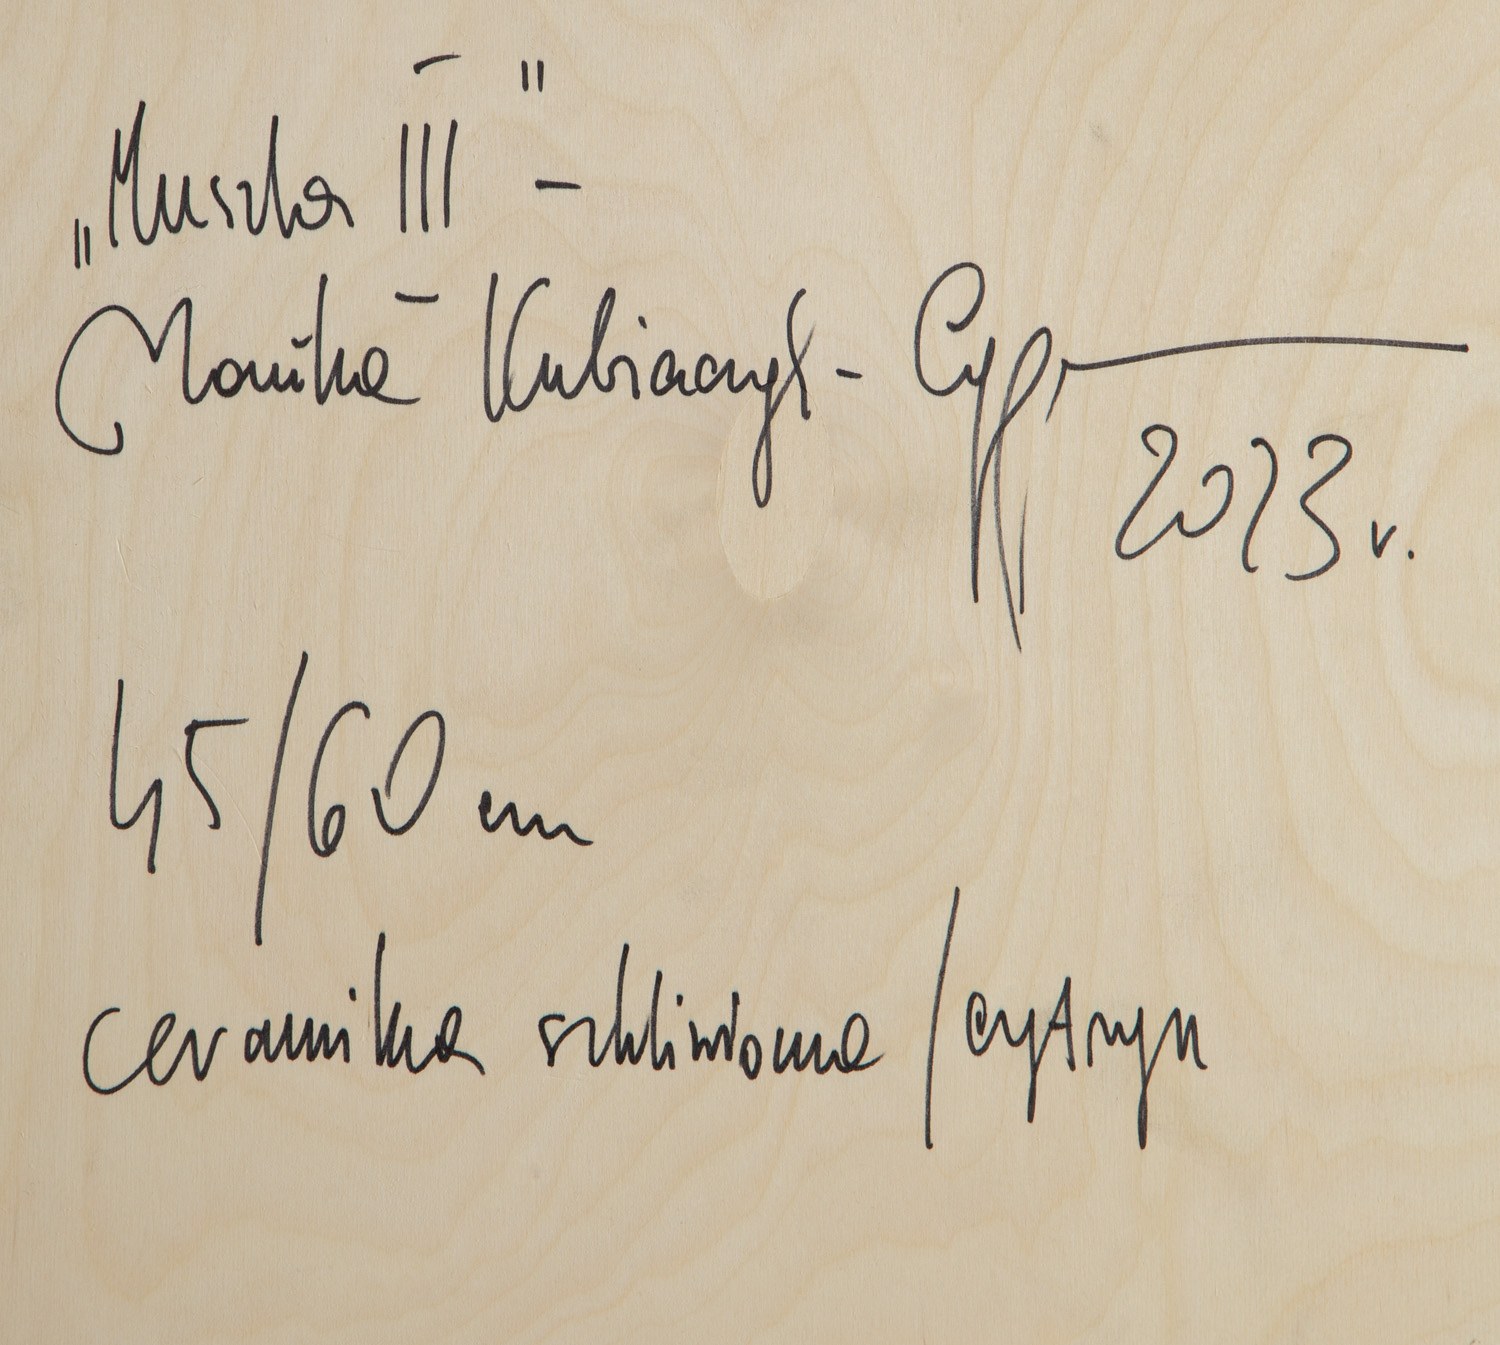 „Muszla III" -
Monika Kubiaczyk -
2023 r.
45/60 cm
ceramika szkliwiona / cytryn